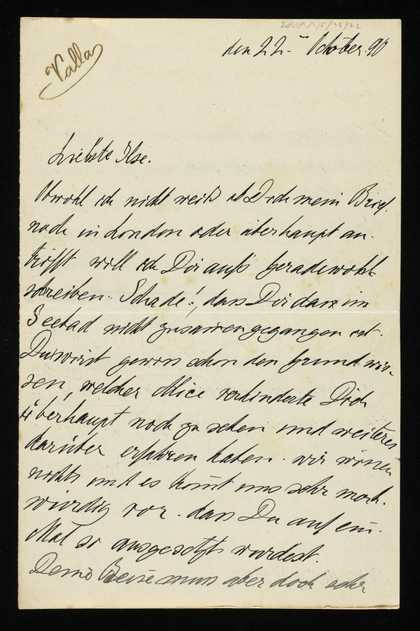 Valla
den 22. October 90
Liebste Ilse.
Obwohl ich nicht weiß ob Dich mein Brief
noch in London oder überhaupt an-
trifft will ich Dir aufs geradewohl
schreiben. Schade!, dass Dir das im
Seebad nicht zusammengegangen ist.
Du wirst gewiss schon den Grund wis-
sen, welcher Alice verhinderte Dich
überhaupt noch zu sehen und weiteres
darüber erfahren haben. wir wissen
nichts und es kommt uns sehr merk-
würdig vor, dass Du auf ein-
Mal so ausgesetzt wurdest.
Deine Reise muss aber doch sehr